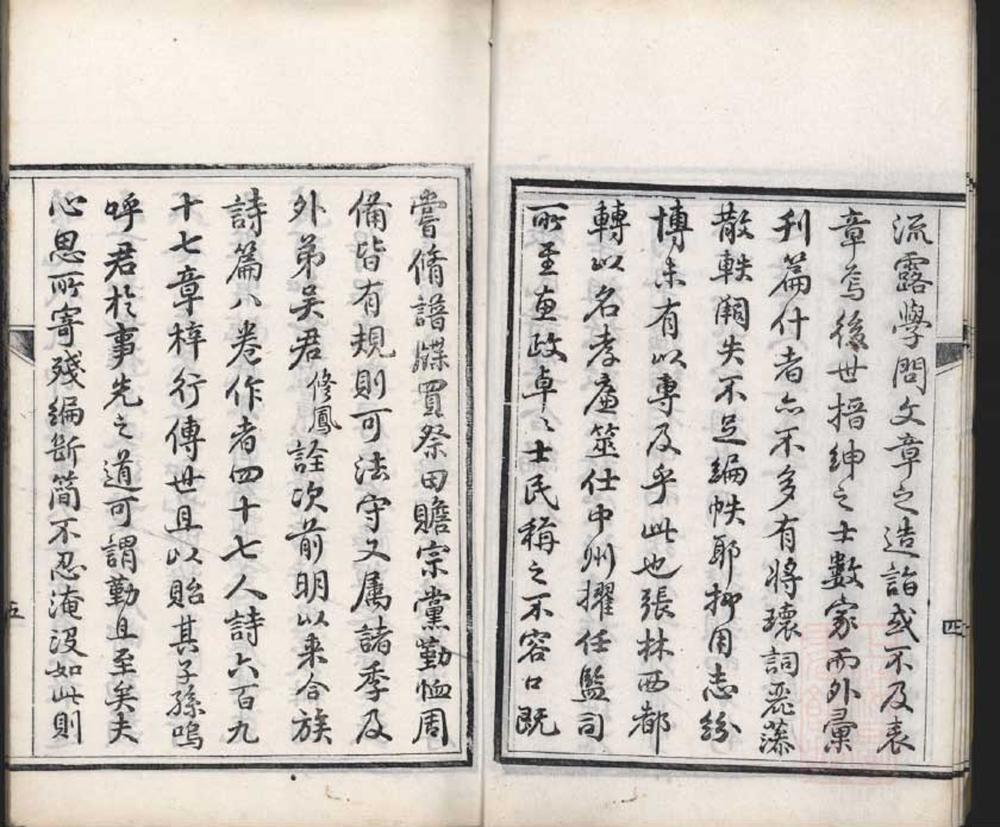 流露學問文章之造詣或不及表
章焉後世搢紳之士數家而外彙
刋篇什者亦不多有將瓌詞麗藻
散軼闕失不足編帙耶抑用志紛
博未有以專及乎此也張林西都
轉以名孝廉筮仕中州擢任監司
所至惠政卓〻士民稱之不容口既
四
嘗脩譜牒買祭田贍宗黨勤恤周
備皆有規則可法守又属諸季及
外弟吴君修鳳詮次前明以来合族
詩篇八卷作者四十七人詩六百九
十七章梓行傳世且以貽其子孫嗚
呼君於事先之道可謂勤且至矣夫
心思所寄殘編斷简不忍淹沒如此則
五